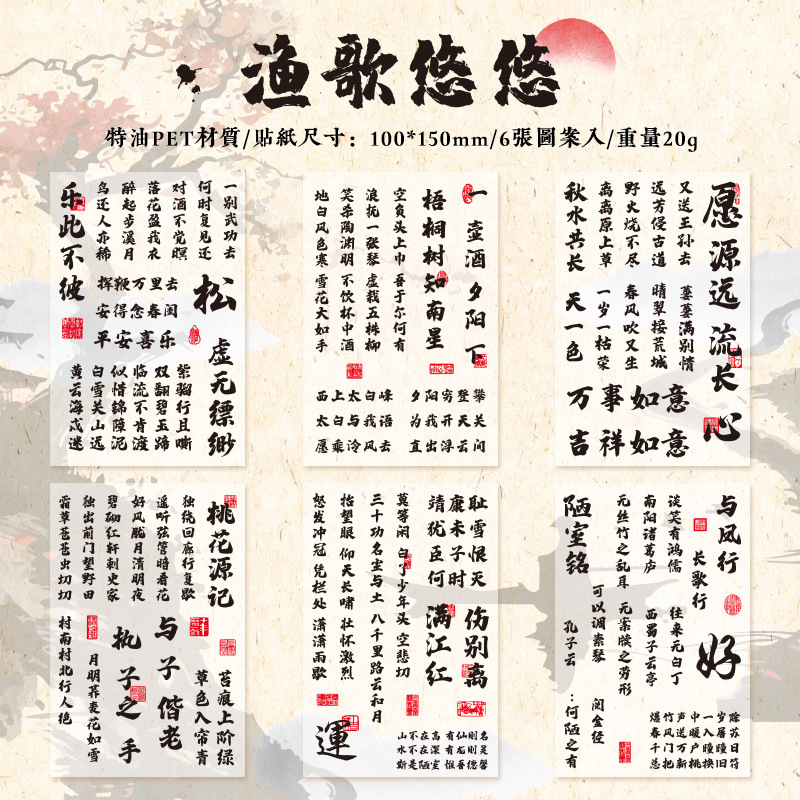 渔歌悠悠
特油PET材質/貼紙尺寸：100*150mm/6張圖案入/重量20g
一别武功去
何时复见还
对酒不觉暝
落花盈我衣
醉起步溪月
鸟还人亦稀
乐此不彼
松
挥鞭万里去
安得念春闺
平安喜乐
虚无缥缈
紫骝行且嘶
双翻碧玉蹄
临流不肯渡
似惜锦障泥
白雪关山远
黄云海戍迷
一壶酒夕阳下
梧桐树知南星
空负头上巾 吾于尔何有
浪抚一张琴 虚栽五株柳
笑杀陶渊明 不饮杯中酒
地白风色寒 雪花大如手
西上太白峰 夕阳穷登攀
太白与我语 为我开天关
愿乘泠风去 直出浮云间
愿源远流长心
又送王孙去 萋萋满别情
远芳侵古道 晴翠接荒城
野火烧不尽 春风吹又生
离离原上草 一岁一枯荣
秋水共长天一色
万事如意
吉祥如意
桃花源记
独绕回廊行复歇
遥听弦管暗看花
好风胧月清明夜
碧砌红轩刺史家
独出前门望野田
霜草苍苍虫切切
苔痕上阶绿
草色入帘青
与子偕老
执子之手
月明荞麦花如雪
村南村北行人绝
靖康耻
犹未雪
臣子恨
何时灭
伤别离
满江红
莫等闲 白了少年头 空悲切
三十功名尘与土 八千里路云和月
抬望眼 仰天长啸 壮怀激烈
怒发冲冠 凭栏处 潇潇雨歇
運
山不在高有仙则名
水不在深有龙则灵
斯是陋室惟吾德馨
与风行
长歌行
好
谈笑有鸿儒 往来无白丁
南阳诸葛庐 西蜀子云亭
无丝竹之乱耳 无案牍之劳形
可以调素琴 阅金经
孔子云：何陋之有
陋室铭
爆竹声中一岁除
春风送暖入屠苏
千门万户曈曈日
总把新桃换旧符